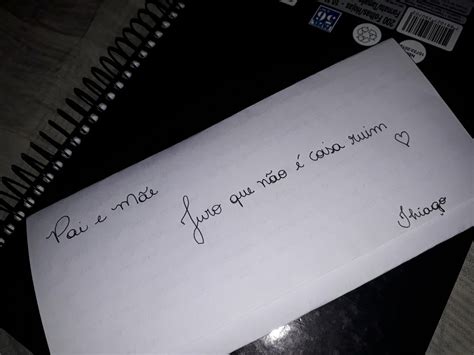 Pai e Mãe
Juro que não é coisa ruim ♡
Thiago